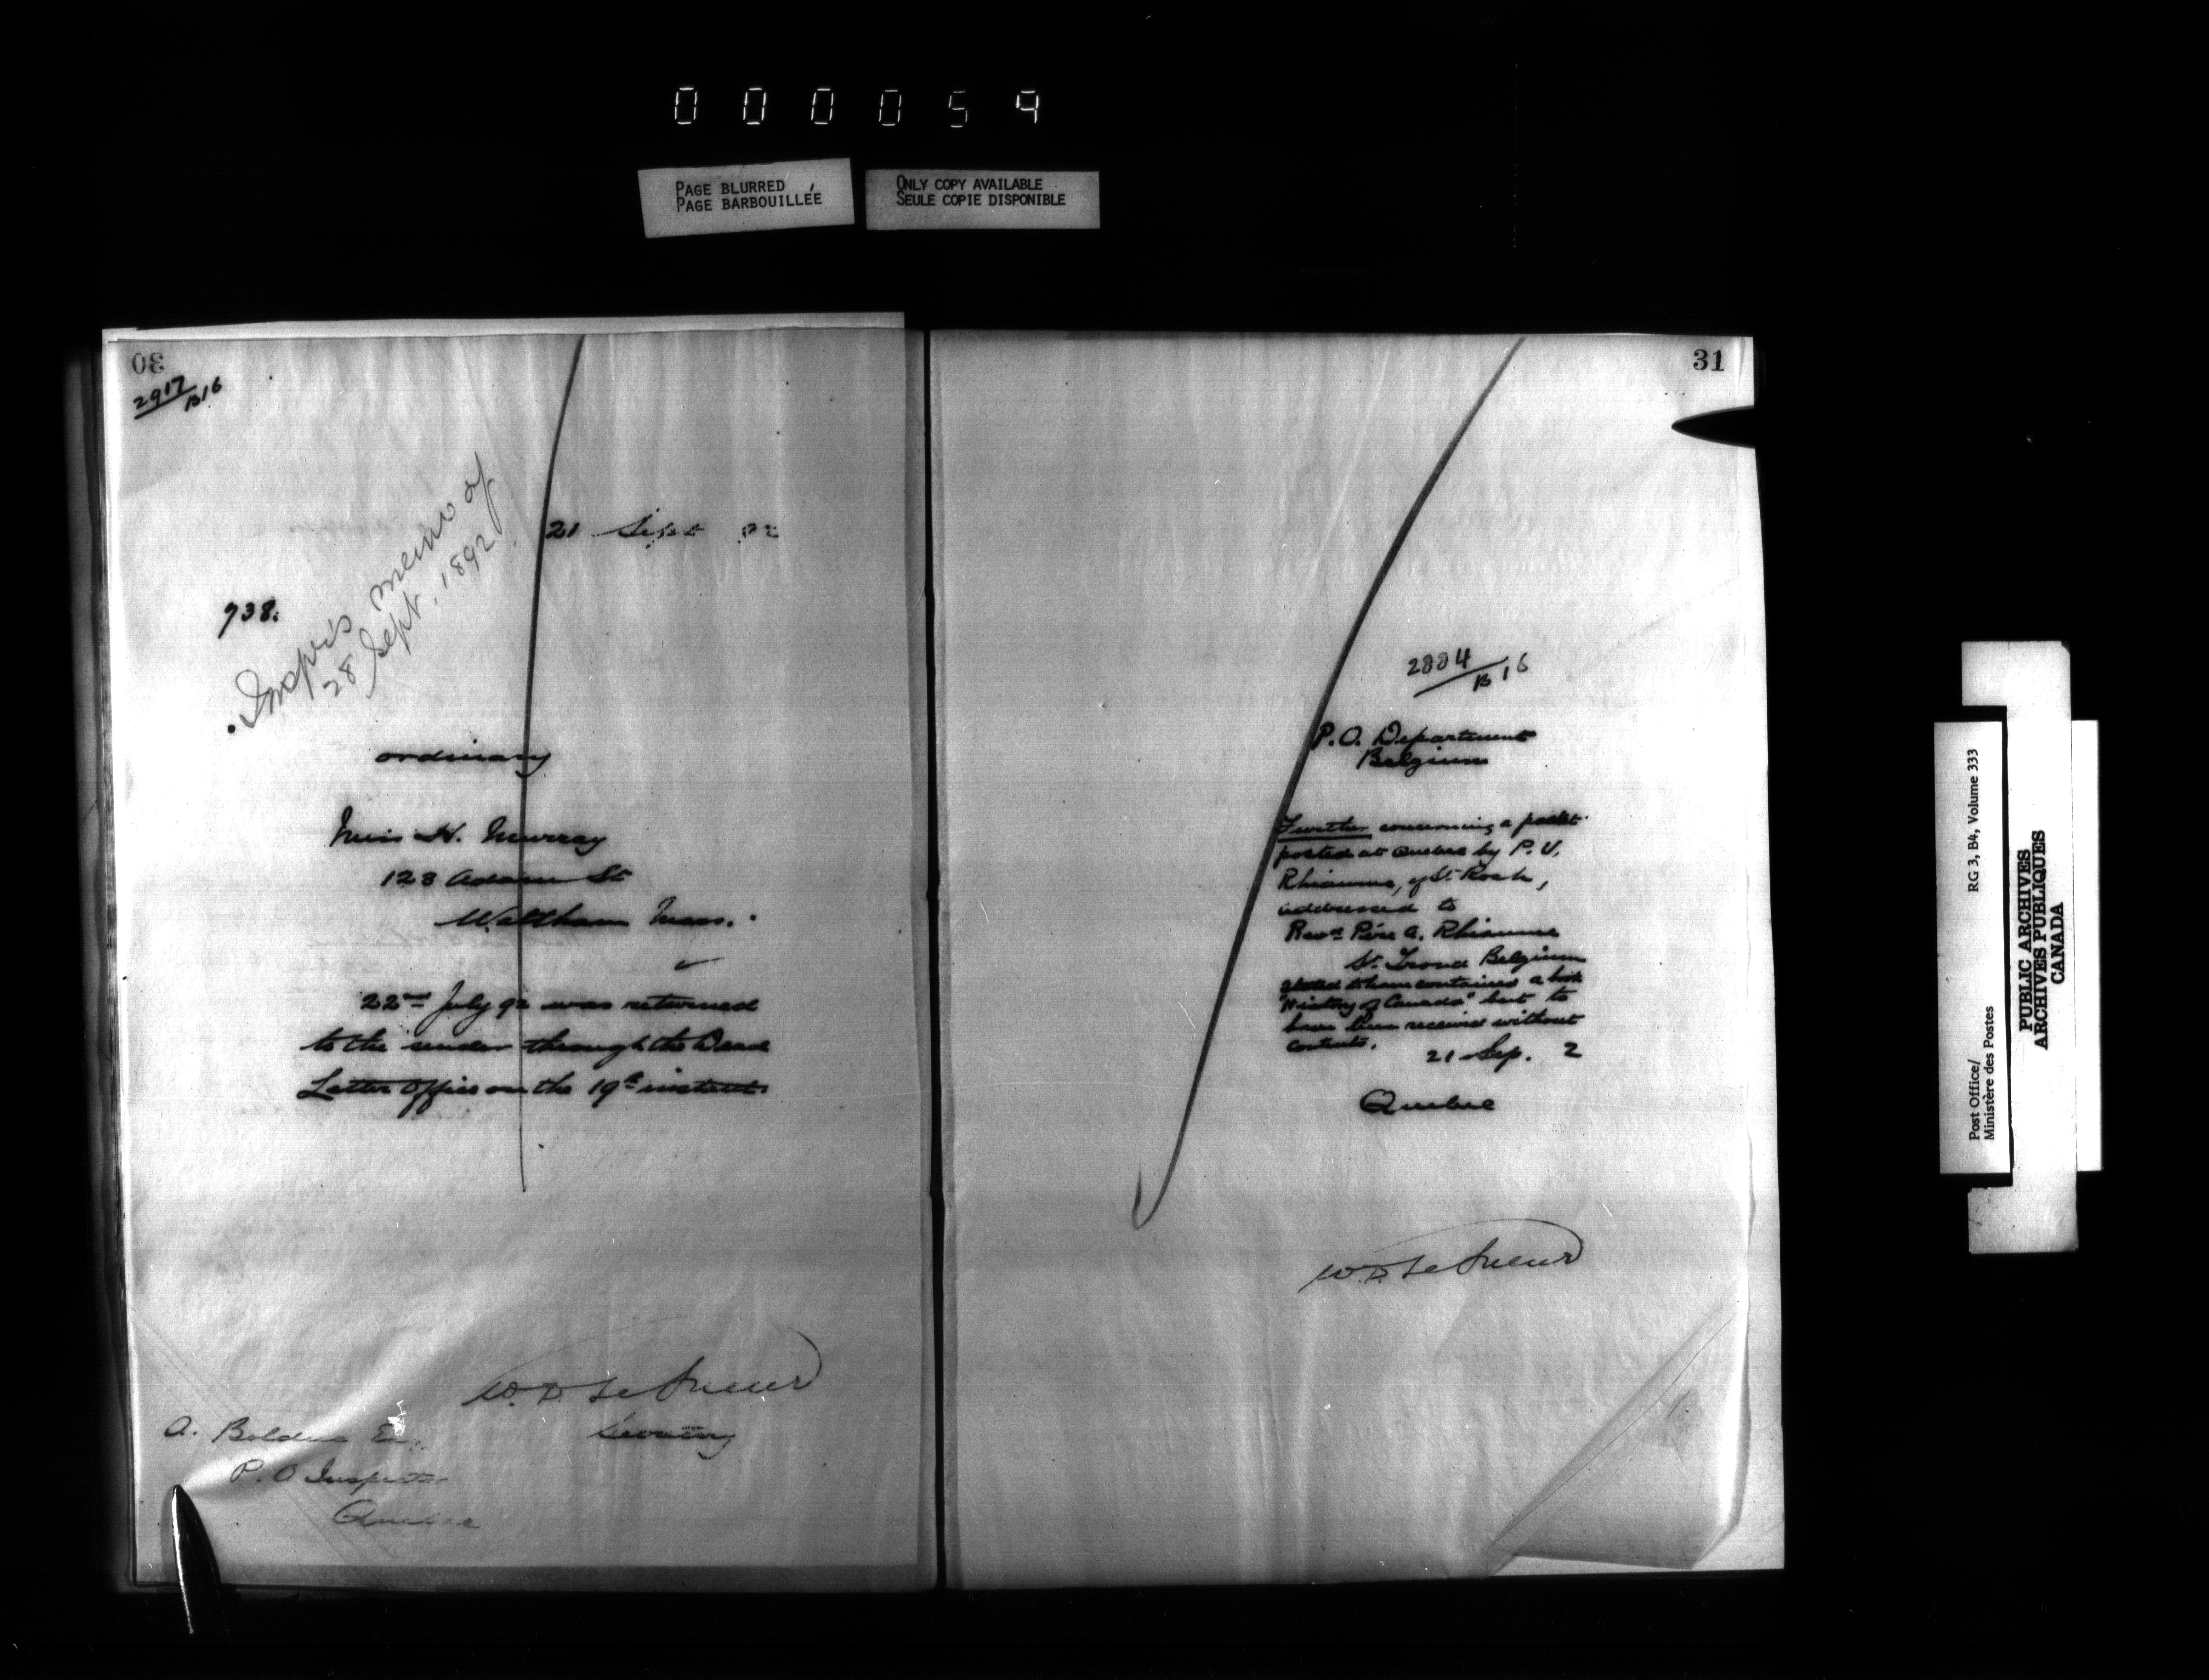 000059
PAGE BLURRED
PAGE BARBOUILLÉE
ONLY COPY AVAILABLE
SEULE COPIE DISPONIBLE
30
2917/B16
21 Sept 92
938.
Inspr's memo of
28 Sept. 1892
ordinary
Miss H. Murray
123 Adams St
Waltham Mass.
22nd July 92 was returned
to the sender through the Dead
Letter Office on the 19th instant.
W. D. LeSueur
Secretary
A. Bolduc Esq.
P. O Inspector
Quebec
31
2884/B16
P.O. Department
Belgium
Further concerning a packet
posted at Quebec by P. V.
Rhéaume, of St. Roch,
addressed to
Revd. Père A. Rhéaume
St. Trond Belgium
stated to have contained a book
"History of Canada" but to
have been received without
contents.
21 Sep. 2
Quebec
W. D. LeSueur
Post Office/
Ministère des Postes
RG 3, B4, Volume 333
PUBLIC ARCHIVES
ARCHIVES PUBLIQUES
CANADA